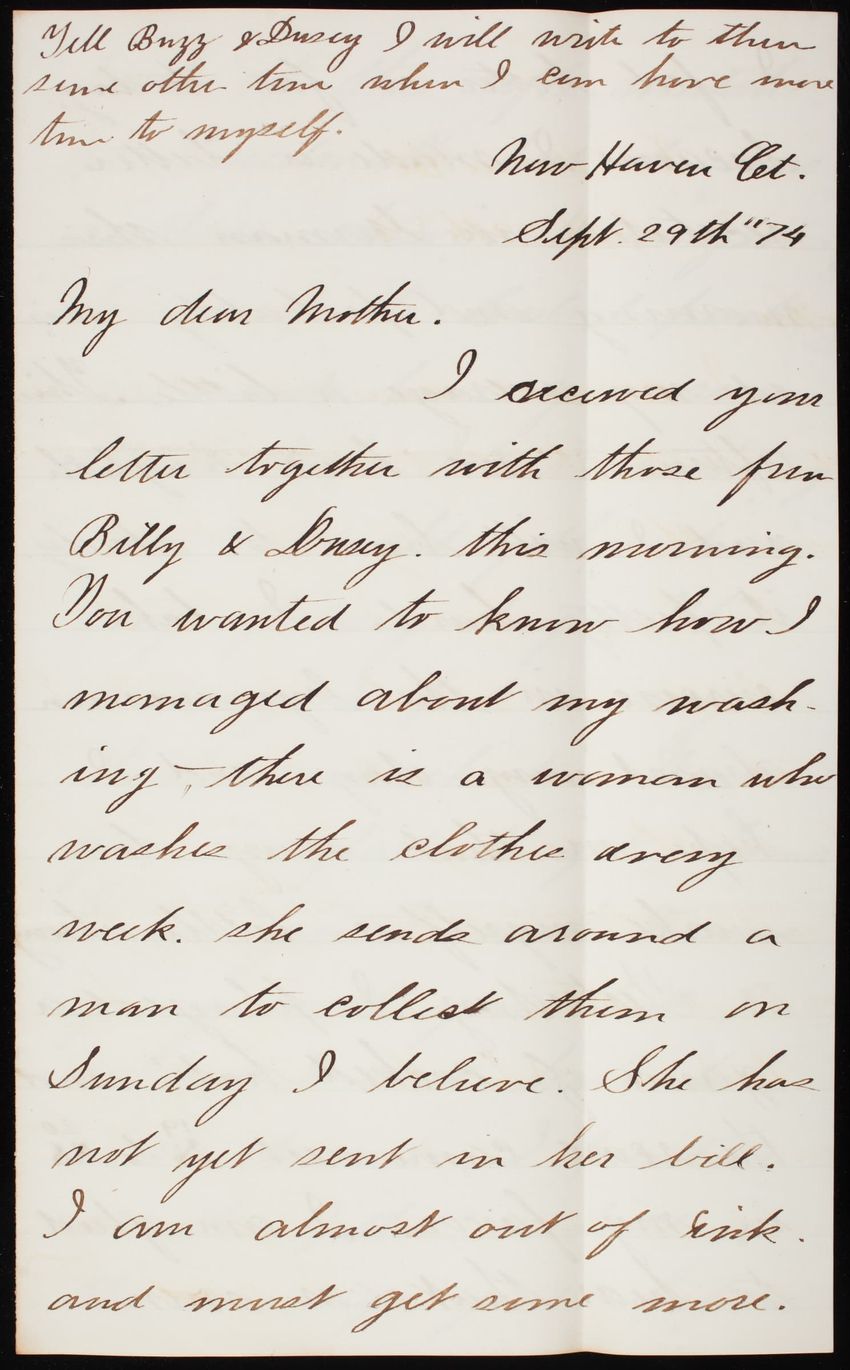 Tell Buzz & Dusey I will write to them
some other time when I can have more
time to myself.
New Haven Ct.
Sept. 29th "74
My dear Mother.
I received your
letter together with those from
Billy & Dusey. this morning.
You wanted to know how I
managed about my wash-
ing – there is a woman who
washes the clothes every
week. she sends around a
man to collect them on
Sunday I believe. She has
not yet sent in her bill.
I am almost out of ink.
and must get some more.